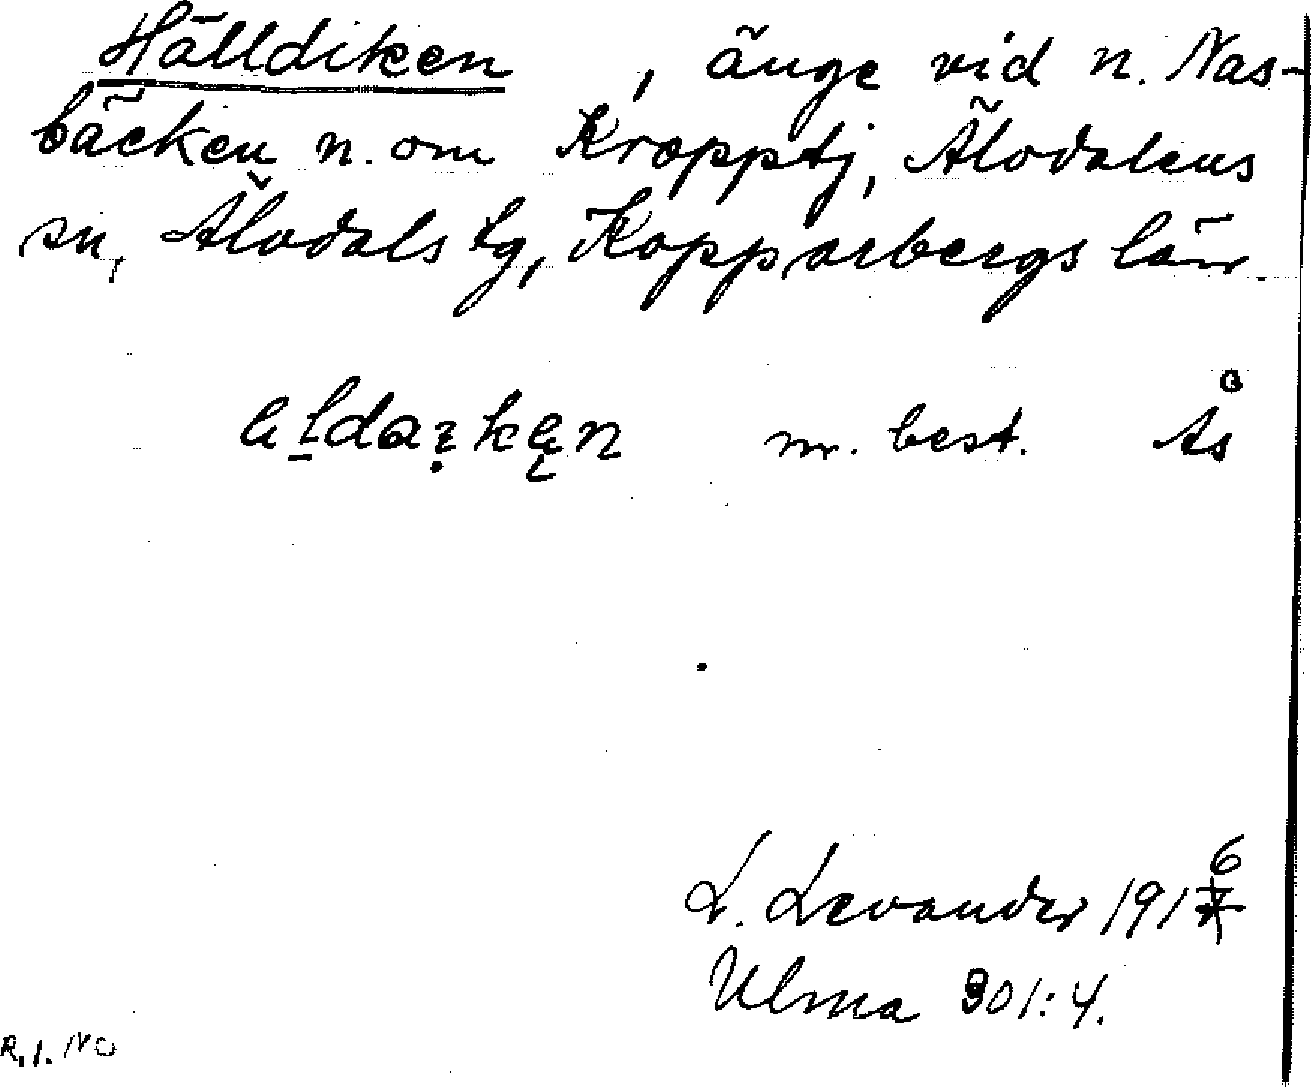 Hälldiken , änge vid n. Nas-
bäcken n. om Kropptj, Älvdalens
sn, Älvdals tg, Kopparbergs län
m. best. Ås
L. Levander 1916
Ulma 301:4.
R.1. NO